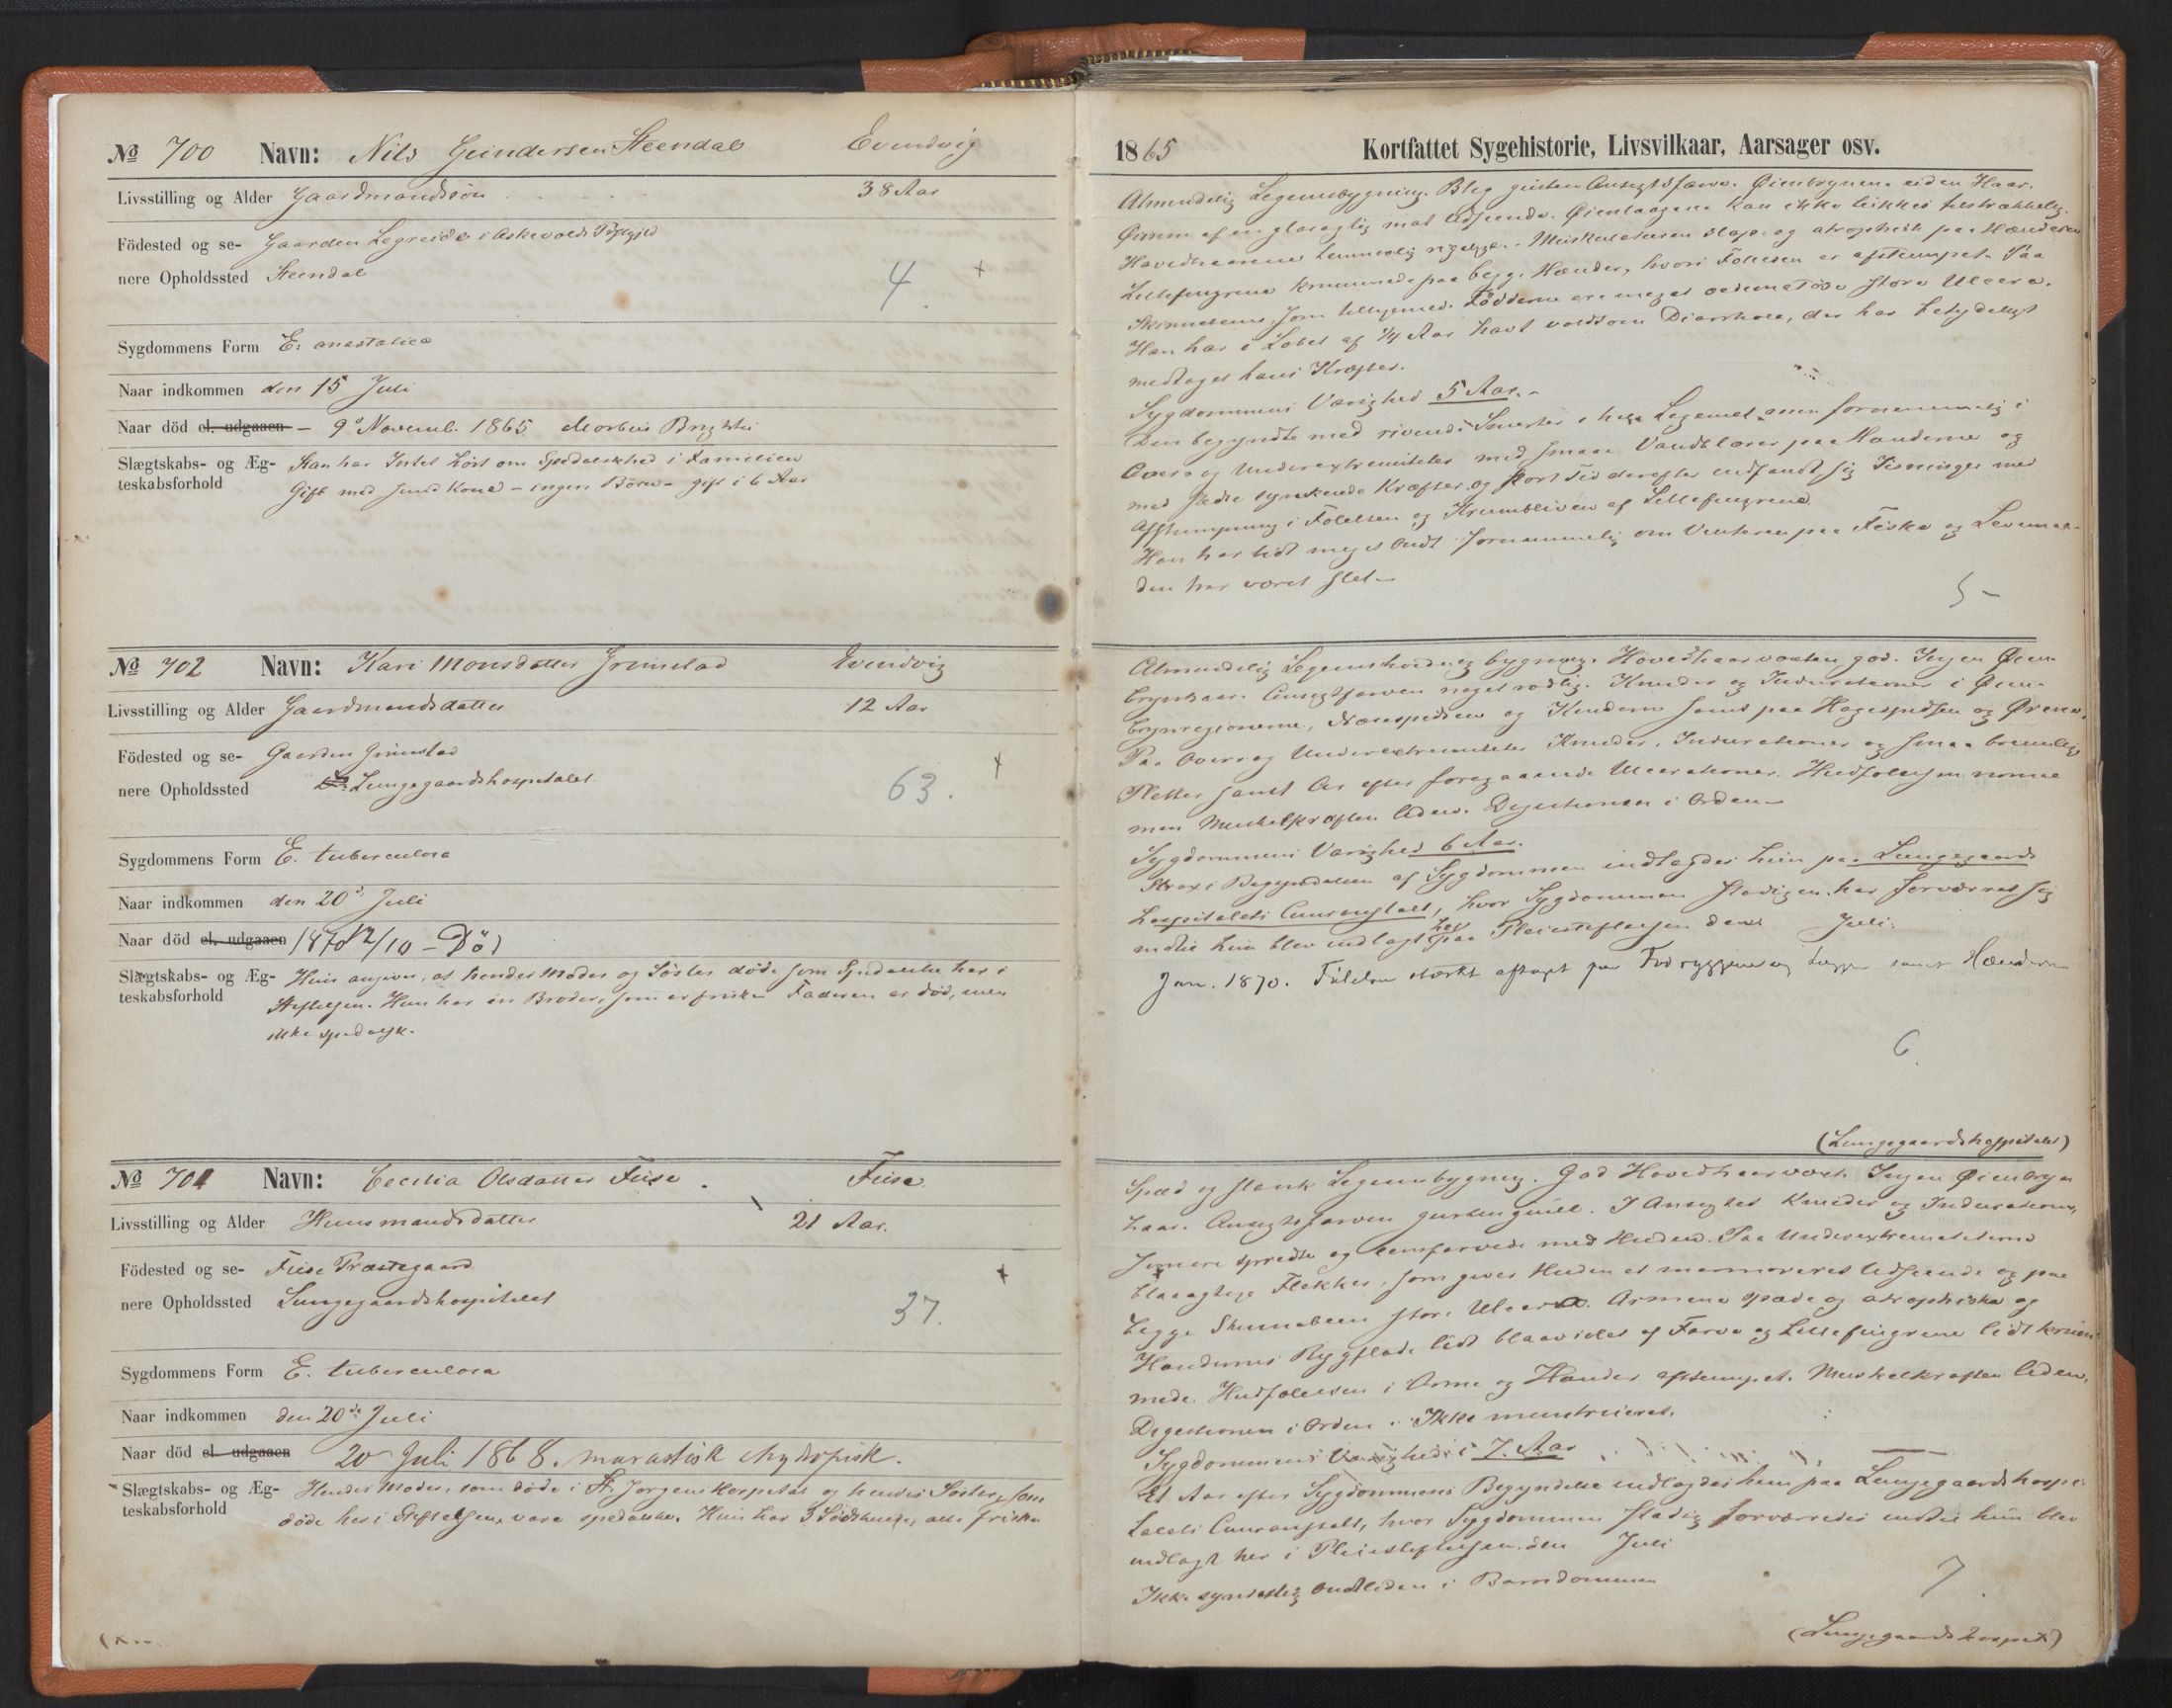 № 700 Navn: Nils Steendal Evindvig
Livsstilling og Alder Gaardmandssön 38 Aar
Födested og se- Gaarden Legreid i Askevolds
nere Opholdssted Steendal
4 +
Sygdommens Form E. anæstetica
Naar indkommen den 15 Juli
Naar död el. udgaaen – 9de Novemb. 1865 Morbus Brightii
Slægtskabs- og Æg- Han har Intet hört om Spedalskhed i Familien
teskabsforhold Gift med sund Kone – ingen Börn – gift i 6 Aar
№ 702 Navn: Kari Monsdatter Grimstad Evindvig
Livsstilling og Alder Gaardmandsdatter 12 Aar
Födested og se- Gaarden Grimstad
nere Opholdssted Lungegaardshospitalet
63. +
Sygdommens Form E. tuberculosa
Naar indkommen den 20de Juli
Naar död el. udgaaen 1870 12/10 – Död
Slægtskabs- og Æg- Hun angiver, at hendes Moder og Söster döde som Spedalske her i
teskabsforhold Stiftelsen. Hun har en Broder, som er frisk. Faderen er död, men
ikke spedalsk.
№ 701 Navn: Cecilia Olsdatter Fuse. Fuse.
Livsstilling og Alder Huusmandsdatter 21 Aar.
Födested og se- Fuse Præstegaard
nere Opholdssted Lungegaardshospitalet
37. +
Sygdommens Form E. tuberculosa
Naar indkommen den 20de Juli
Naar död el. udgaaen 20 Juli 1868. marastisk & hydropisk.
Slægtskabs- og Æg- Hendes Moder, som döde i St. Jørgens Hospital og hendes Söster, som
teskabsforhold döde her i Stiftelsen, vare spedalske. Hun har 3 Södskende, alle friske
1865 Kortfattet Sygehistorie, Livsvilkaar, Aarsager osv.
Almindelig Legemsbygning. Bleg gusten Ansigtsfarve. Øienbrynene uden Haar.
Øinene af en glasagtig mat Udseende. Øienlaagene kan ikke lukkes tilstrækkelig.
Hovedhaarene temmelig. Muskulaturen slap og atrophisk paa Hænderne
Lillefingrene krummede paa begge Hænder, hvori Følelsen er afstumpet. Paa
Skinnebenene, som tilligemed Fødderne ere meget oedematøse store Ulcera.
Han har i Løbet af 1/4 Aar havt voldsom Diarrhoe, der har betydeligt
medtaget hans Kræfter.
Sygdommens Varighed 5 Aar.
Den begyndte med rivende Smerter i hele Legemet men fornemmelig i
Over og Underextremiteter med smaa Vandblærer paa Hænderne og
med synkende Kræfter og kort Tid derefter indfandt sig
Afstumpning i Følelsen og Krumbliven af Lillefingrene.
Han har lidt meget Ondt fornemmelig om Vinteren paa Fiske og Levemaa-
den har været slet.
5 –
Almindelig Legemsbygning. Hovedhaarvæxten god. Ingen Øien-
brynhaar. Ansigtsfarven noget rødlig. Knuder og Indurationer i Øien-
brynregionerne, Næsespidsen og Kinderne samt paa Hagespidsen og Ørene.
Paa Over og Underextremiteter Knuder, Indurationer og smaa brunlige
Pletter samt Ar efter foregaaende Ulcerationer. Hudfølelsen normal
men Muskelkraften liden. Digestionen i Orden.
Sygdommens Varighed 6 Aar.
Strax i Begyndelsen af Sygdommen indlagdes hun paa Lungegaards
hospitalets Cuuranstalt, hvor Sygdommen stadigen har forværret sig
indtil hun blev indlagt her paa Pleiestiftelsen den Juli.
Jan. 1870. Fölelsen stærkt aftaget paa Fodryggene og samt Hænderne
6.
(Lungegaardshospitalet)
Spæd og slank Legemsbygning. God Hovedhaarvæxt. Ingen Øienbryn
haar. Ansigtsfarven gustengul. I Ansigtet Knuder og Indurationer,
som ere spredte og eensfarvede med Huden. Paa Underextremiteterne
blaaagtige Flekker, som giver Huden et marmoreret Udseende og paa
begge Skinneben store Ulcera. Armene spæde og atrophiske og
Hændernes Rygflade lidt blaaviolet af Farve og Lillefingrene lidt krum-
mede. Hudfølelsen i Arme og Hænder afstumpet. Muskelkraften liden,
Digestionen i Orden. Ikke menstrueret.
Sygdommens Varighed 7 Aar
Et Aar efter Sygdommens Begyndelse indlagdes hun paa Lungegaardshospi-
talets Cuuranstalt, hvor Sygdommen stadig forværredes indtil hun blev
indlagt her i Pleiestiftelsen den Juli
Ikke synderlig Ondt liden i Barndommen
7.
(Lungegaardshospit)